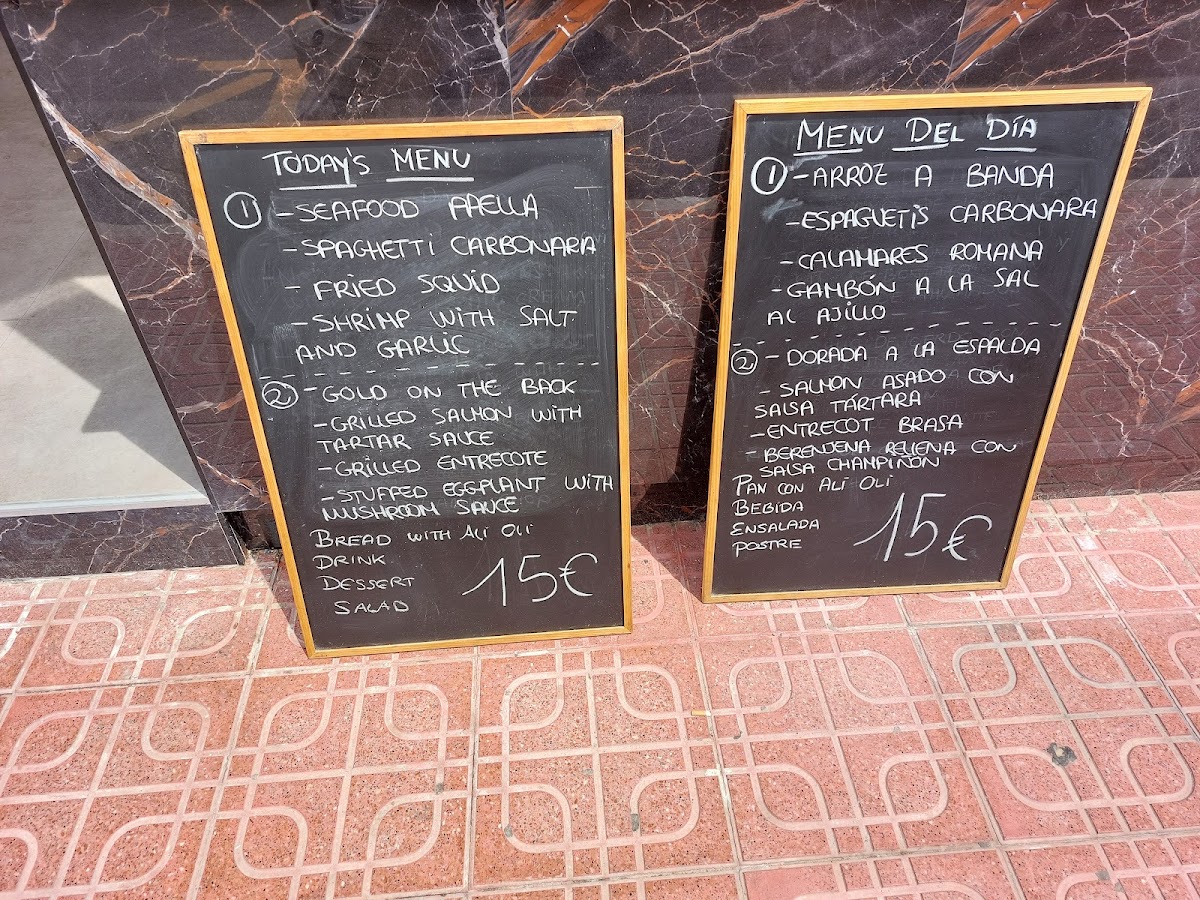 TODAY'S MENU
1 - SEAFOOD PAELLA
- SPAGHETTI CARBONARA
- FRIED SQUID
- SHRIMP WITH SALT
AND GARLIC
2 - GOLD ON THE BACK
- GRILLED SALMON WITH
TARTAR SAUCE
- GRILLED ENTRECOTE
- STUFFED EGGPLANT WITH
MUSHROOM SAUCE
BREAD WITH ALI OLI
DRINK
DESSERT
SALAD
15€
MENU DEL DÍA
1 - ARROZ A BANDA
- ESPAGUETIS CARBONARA
- CALAMARES ROMANA
- GAMBÓN A LA SAL
AL AJILLO
2 - DORADA A LA ESPALDA
- SALMON ASADO CON
SALSA TÁRTARA
- ENTRECOT BRASA
- BERENJENA RELLENA CON
SALSA CHAMPIÑON
PAN CON ALI OLI
BEBIDA
ENSALADA
POSTRE
15€